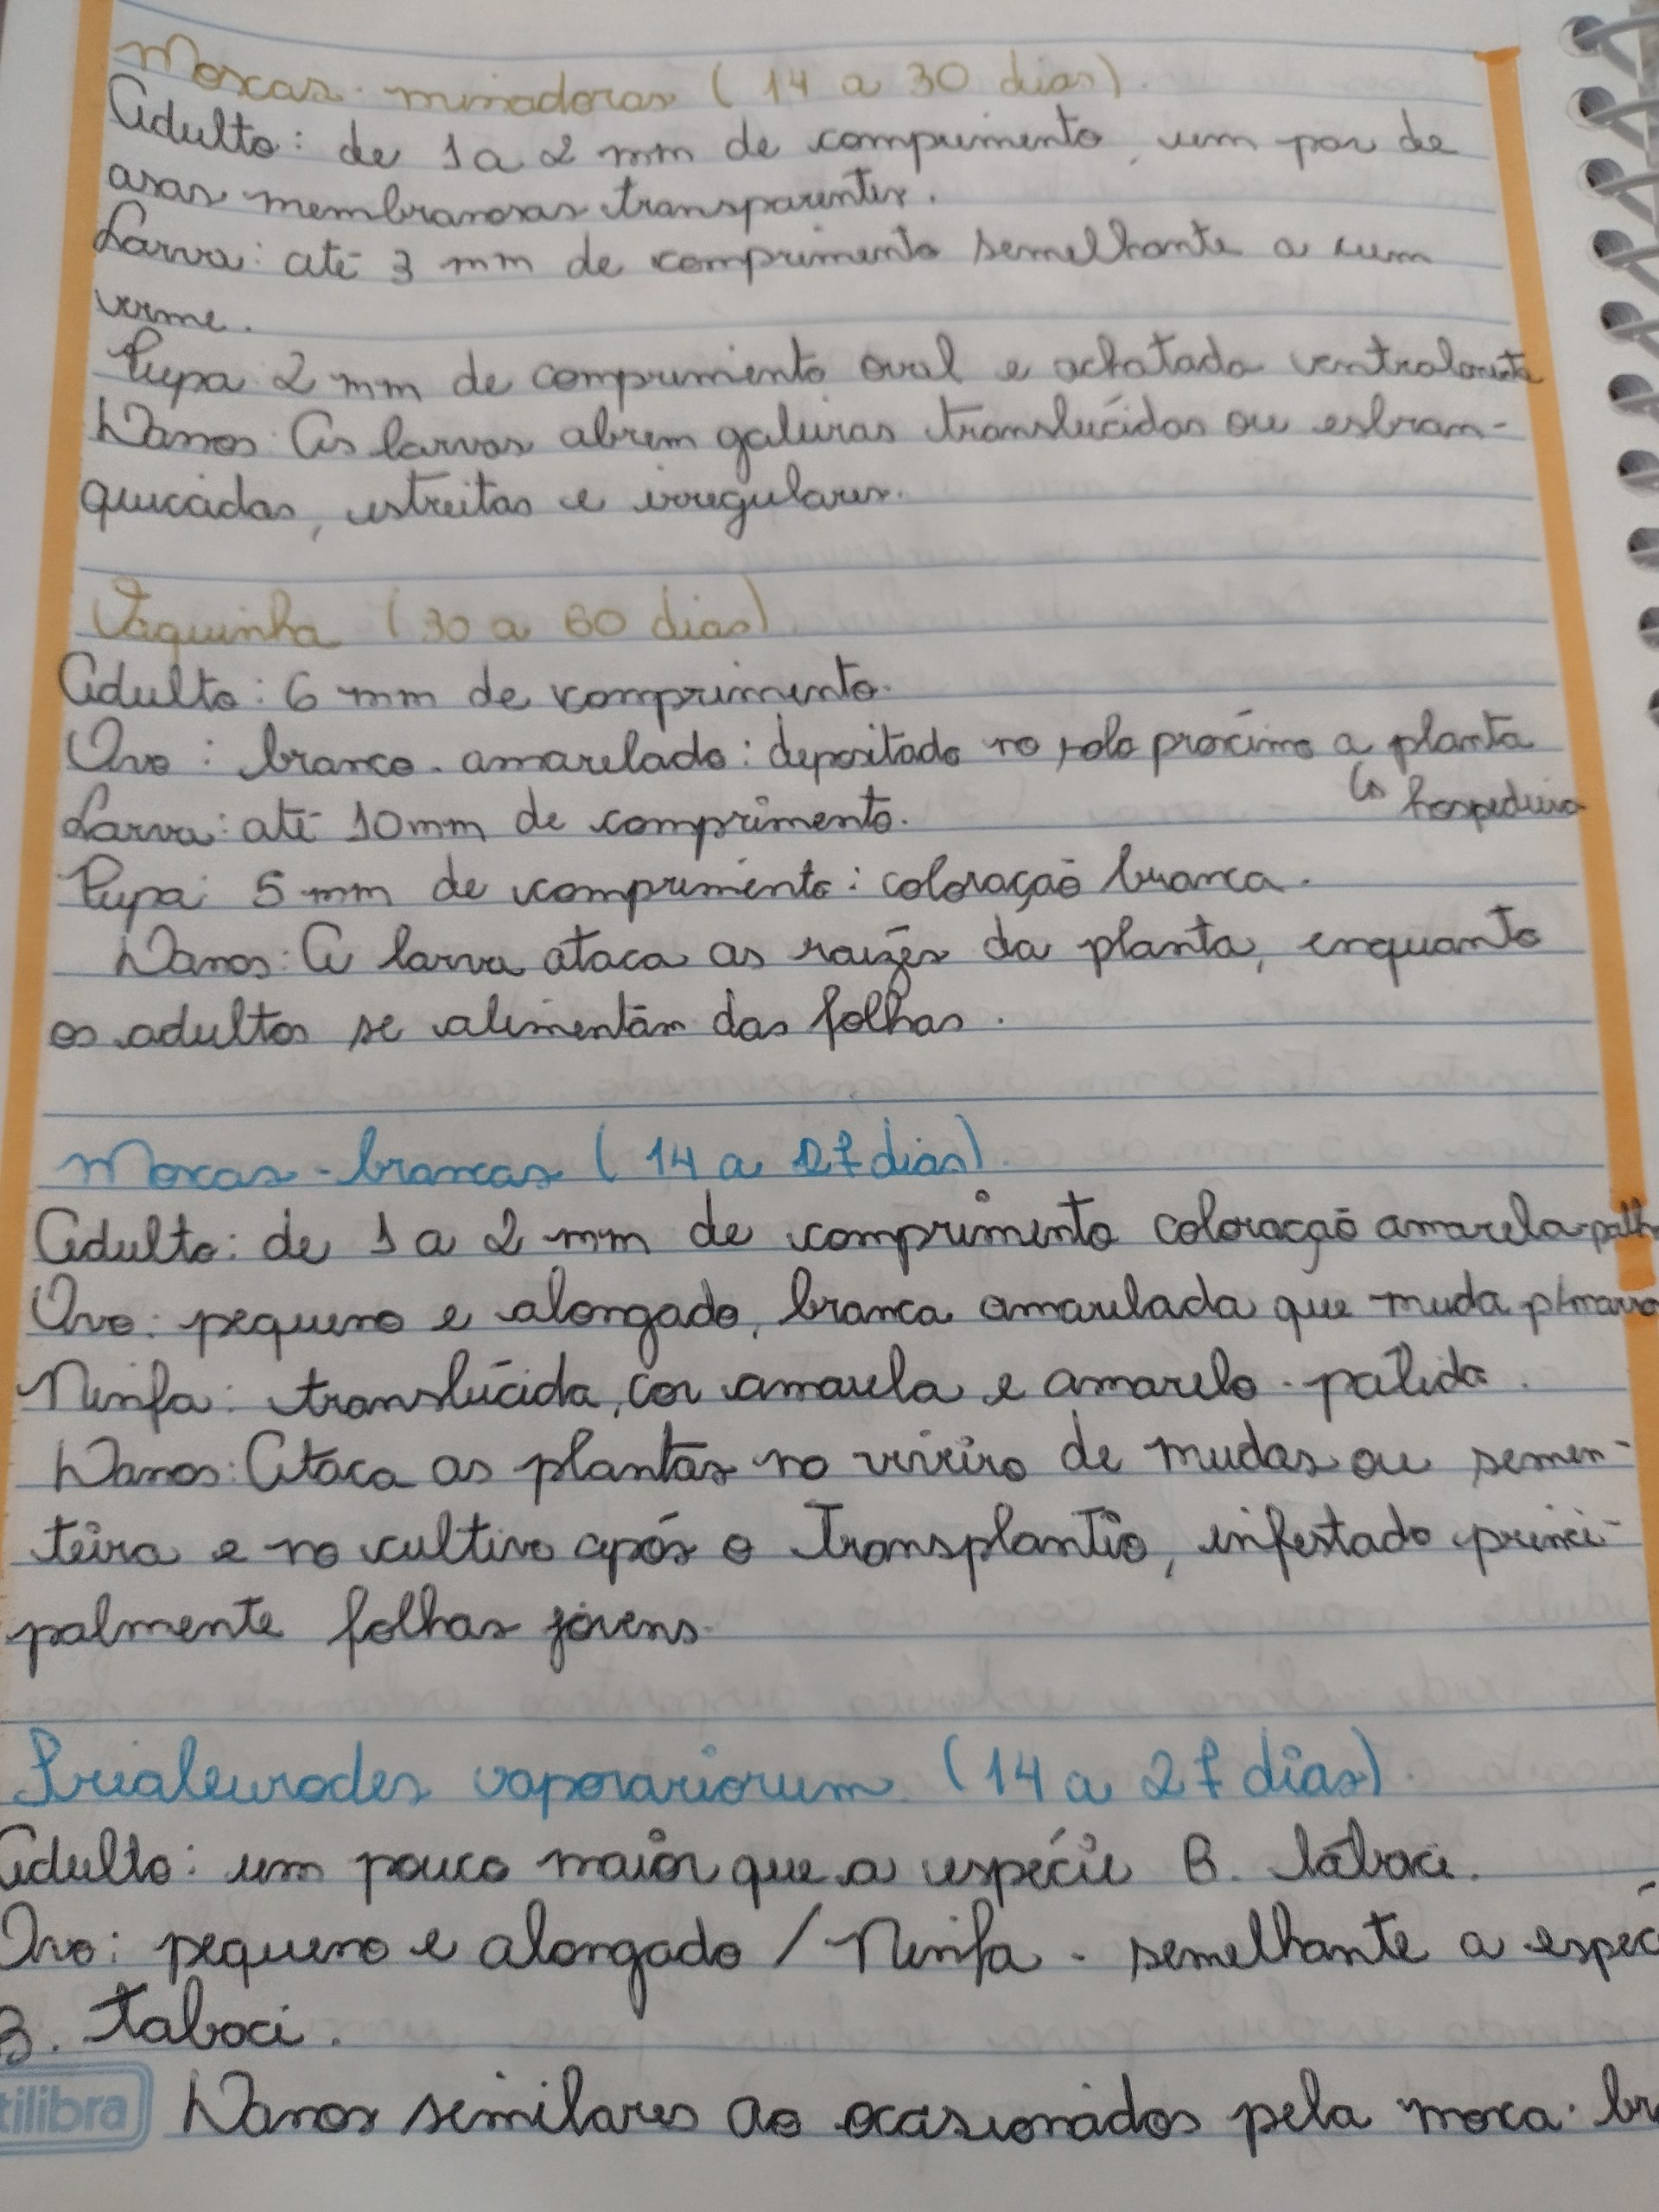 Moscas-minadoras (14 a 30 dias).
Adulto: de 1 a 2 mm de comprimento, um par de
asas membranosas transparentes.
Larva: até 3 mm de comprimento semelhante a um
verme.
Pupa 2 mm de comprimento oval e achatada ventralmente
Danos: As larvas abrem galerias translúcidas ou esbran-
quicadas, estreitas e irregulares.
Vaquinha (30 a 60 dias).
Adulto: 6 mm de comprimento.
Ovo: branco-amarelado: depositado no solo próximo a planta
↳ hospedeira
Larva: até 10mm de comprimento.
Pupa: 5 mm de comprimento: coloração branca.
Danos: A larva ataca as raízes da planta, enquanto
os adultos se alimentam das folhas.
Moscas-brancas (14 a 27 dias).
Adulto: de 1 a 2 mm de comprimento coloração amarela-palh
Ovo: pequeno e alongado, branca amarelada que muda p/marro
Ninfa: translúcida, cor amarela e amarelo-pálida.
Danos: Ataca as plantas no viveiro de mudas ou semen-
teira e no cultivo após o Transplantio, infestado princi-
palmente folhas jovens.
Trialeurodes vaporariorum (14 a 27 dias).
Adulto: um pouco maior que a espécie B. tabaci.
Ovo: pequeno e alongado / Ninfa - semelhante a espéc
B. Tabaci.
tilibra Danos similares ao ocasionados pela mosca-br